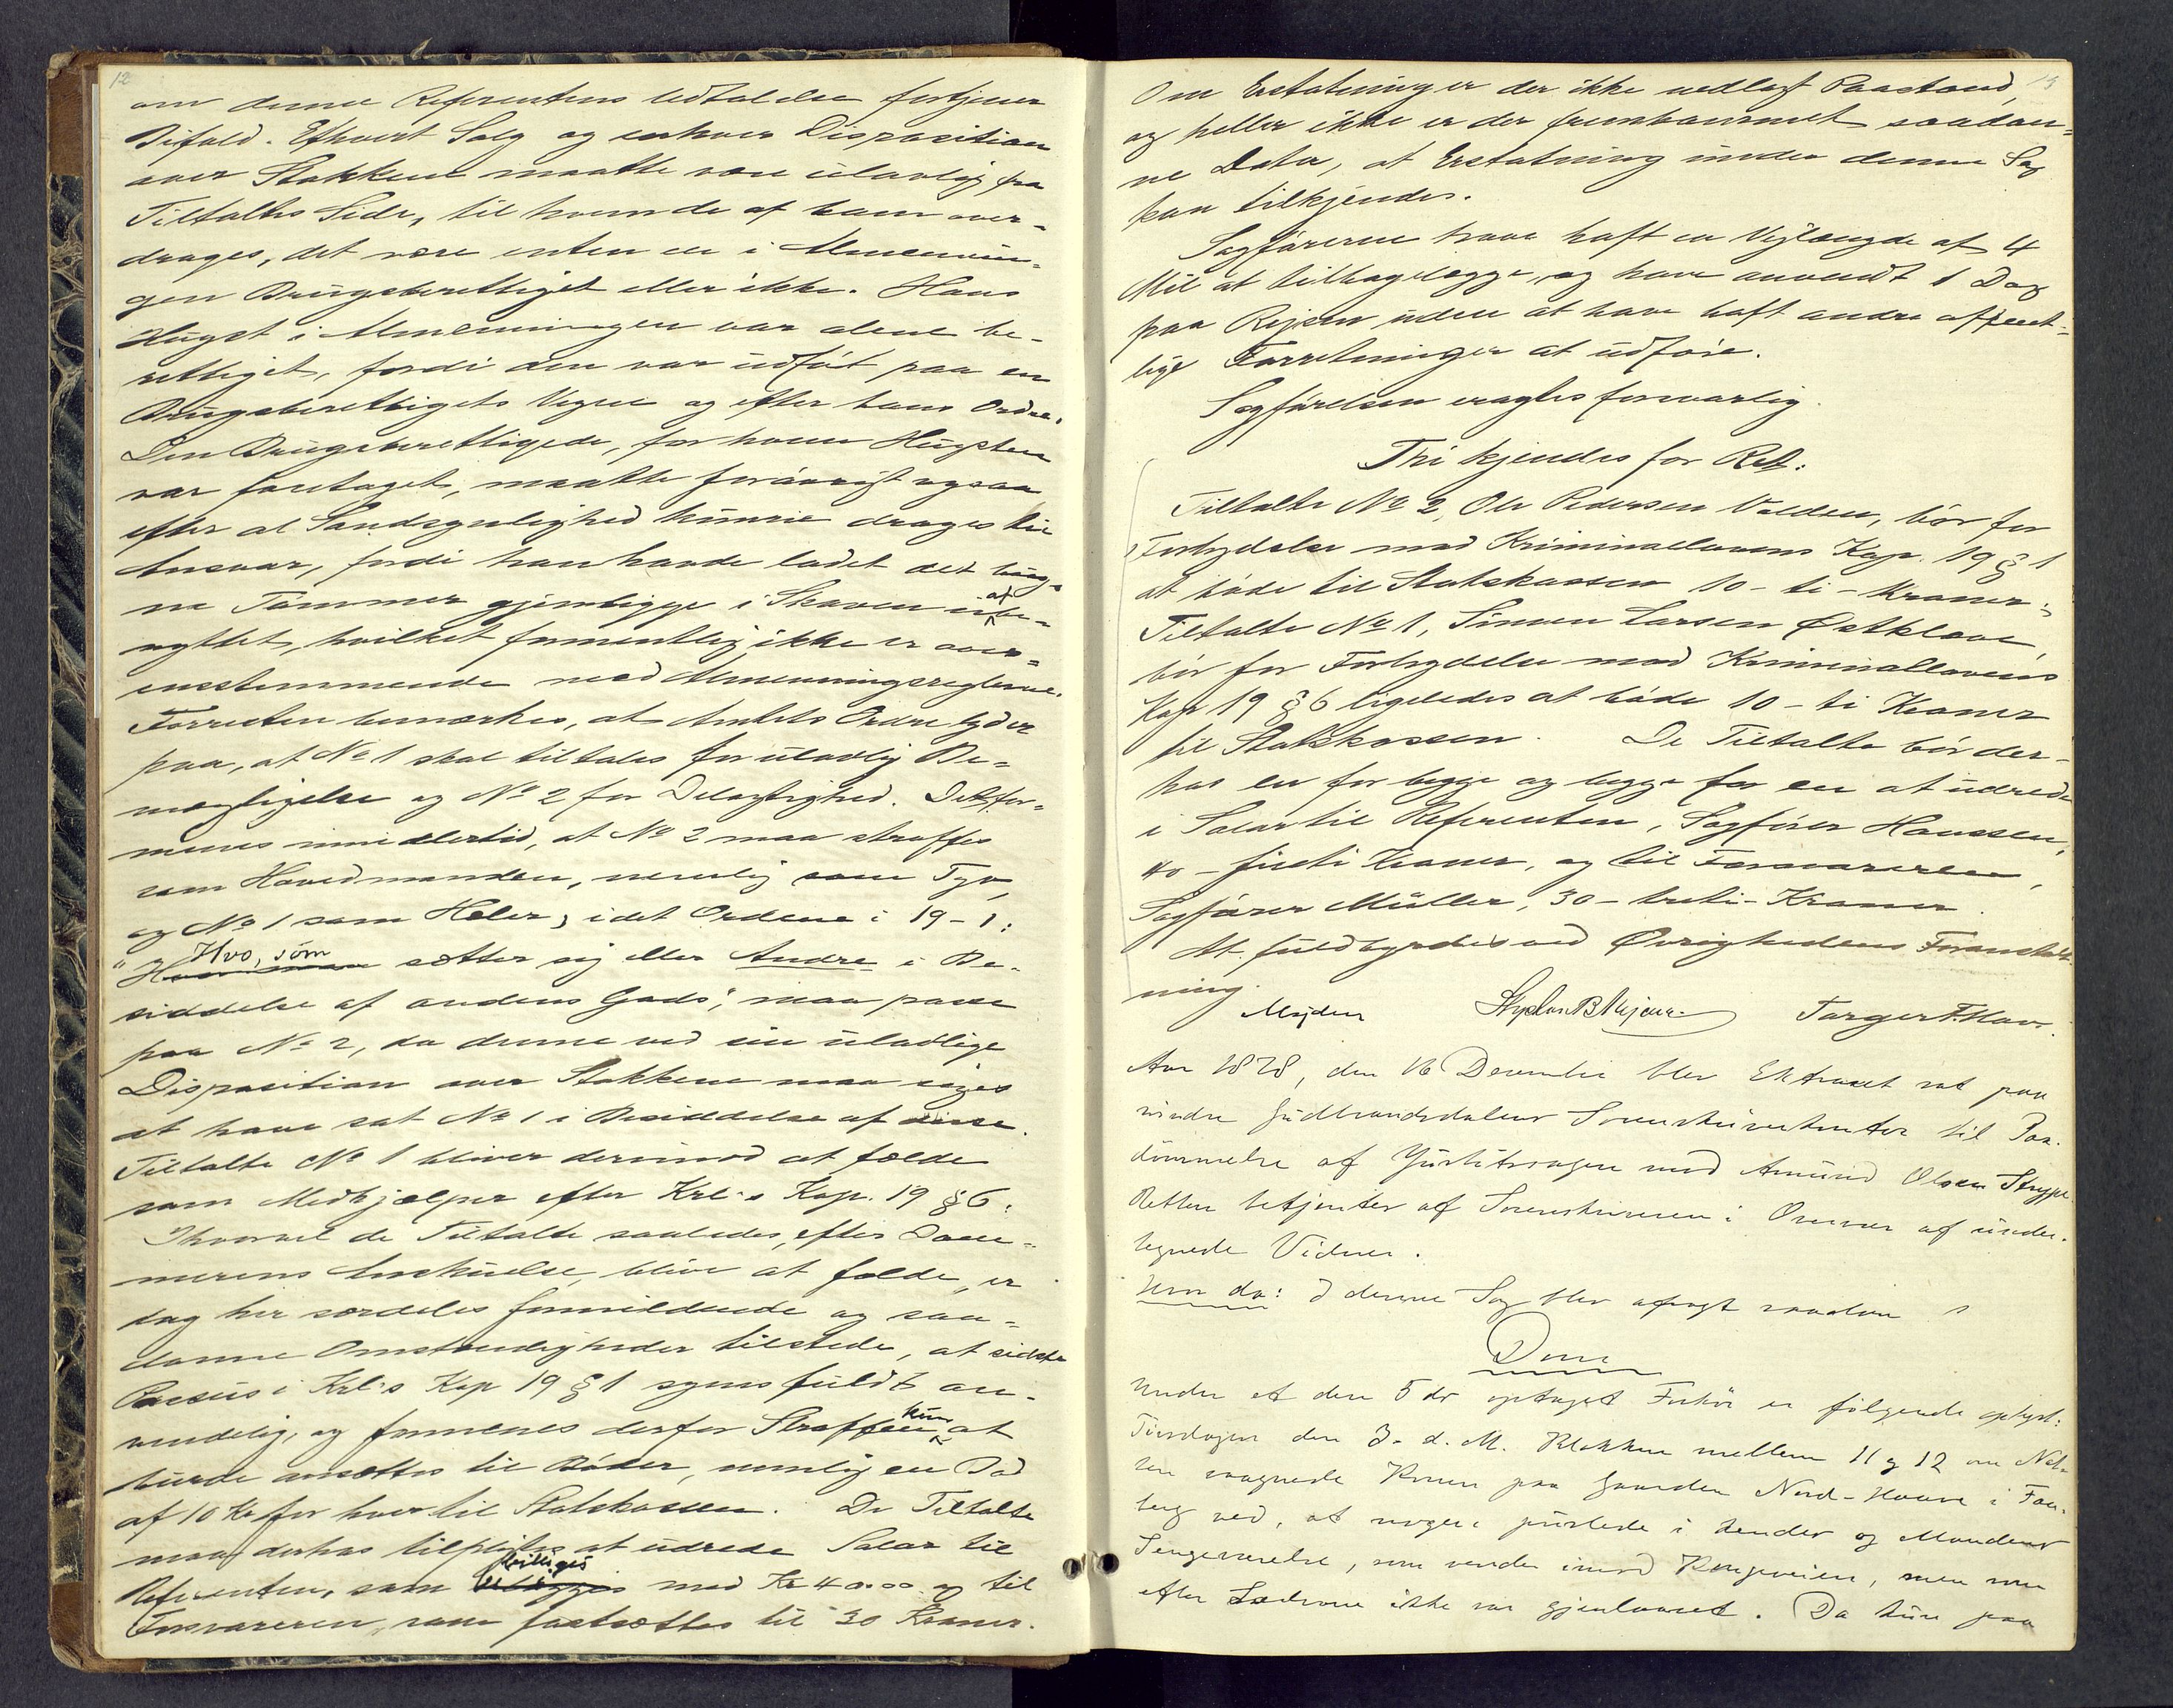 12
om denne Referentens Udtalelse fortjener
Bifald. Ethvert Salg og enhver Disposition
over Stokkene maatte være ulovlig fra
Tiltaltes Side, til hvem de af ham over-
drages, det være enten en i Almennin-
gen Brugsberettiget eller ikke. Hans
Hugst i Almenningen var alene be-
rettiget, fordi den var udført paa en
Brugsberettigets Vegne og efter hans Ordre.
Den Brugsberettigede, for hvem Hugsten
var foretaget, maatte forøvrigt ogsaa
efter al Sandsynlighed kunne drages til
Ansvar, fordi han havde ladet det hug-
ne Tømmer gjenligge i Skoven uaf be-
nyttet, hvilket formentlig ikke er over-
ensstemmende med Almenningsreglerne.
Forresten bemærkes, at Amtets Ordre lyder
paa, at No 1 skal tiltales for ulovlig Be-
mægtigelse og No 2 for Delagtighed. Det for-
menes imidlertid, at No 2 maa straffes
som Hovedmanden, nemlig som Tyv,
og No 1 som Hæler, idet Ordene i 19-1:
" Hvo, som sætter sig eller Andre i Be-
siddelse af andens Gods", maa passe
paa No 2, da denne ved sin ulovlige
Disposition over Stokkene maa siges
at have sat No 1 i Besiddelse af disse.
Tiltalte No 1 bliver derimod at fælde
som Medhjælper efter Krl:s Kap. 19 § 6.
Ihvorvel de Tiltalte saaledes, efter Dom-
merens Anskuelse, blive at fælde, er
dog her særdeles formildende og saa-
danne Omstændigheder tilstede, at sidste
Passus i Krl:s Kap 19 § 1 synes fuldt an-
vendelig, og formenes derfor Straffen kun at
burde ansættes til Bøder, nemlig en Bod
af 10 Kr for hver til Statskassen. De Tiltalte
maa derhos tilpligtes at udrede Salær til
Referenten, som billiges med Kr 40.00 og til
Forsvareren, som fastsættes til 30 Kroner.
13
Om Erstatning er der ikke nedlagt Paastand,
og heller ikke er der fremkommet saadan-
ne Data, at Erstatning under denne Sag
kan tilkjendes.
Sagførerne have haft en Vejlængde af 4
Mil at tilbagelægge, og have anvendt 1 Dag
paa Rejsen uden at have haft andre offent-
lige Forretninger at udføre.
Sagførelsen eragtes forsvarlig.
Thi kjendes for Ret:
Tiltalte No 2, Ole Pedersen Volden, bør for
Forbrydelse mod Kriminallovens Kap. 19 § 1
at bøde til Statskassen 10 - ti - Kroner.
Tiltalte No 1, Simen Larsen Østklove,
bør for Forbrydelse mod Kriminallovens
Kap 19 § 6 ligeledes at bøde 10 - ti Kroner
til Statskassen. De Tiltalte bør der-
hos en for begge og begge for en at udrede
i Salær til Referenten, Sagfører Hanssen,
40 - firti Kroner, og til Forsvareren,
Sagfører Müller, 30 - treti - Kroner.
At fuldbyrdes ved Øvrighedens Foranstalt-
ning.
Aar 1878, den 16 December blev Extraret sat paa
nindre Gudbrandsdalens Sorenskriverkontor til Paa-
dømmelse af Justitssagen mod Amund Olsen Strype.
Retten betjentes af Sorenskriveren i Overvær af under-
tegnede Vidner.
Hvor da: I denne Sag blev afsagt saadan
Dom
Under et den 5 ds optaget Forhør er følgende oplyst:
Tirsdagen den 3. d. M. Klokken mellem 11 og 12 om Nat-
ten vaagnede Konen paa Gaarden Nord-Hovve i Faa-
berg ved, at nogen puslede i hendes og Mandens
Sengeværelse, som vender imod Kongeveien, men som
efter Sædvane ikke var gjenlaaset. Da hun paa